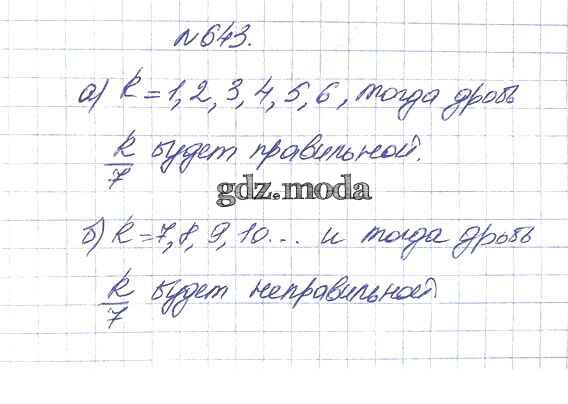 №643.
а) k = 1, 2, 3, 4, 5, 6, тогда дробь
k/7 будет правильной.
gdz.moda
б) k = 7, 8, 9, 10... и тогда дробь
k/7 будет неправильной